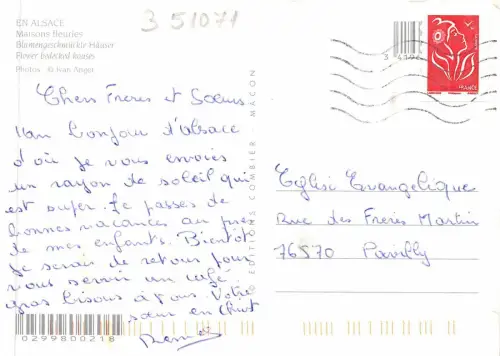 3 51071
EN ALSACE
Maisons fleuries
Blumengeschmückte Häuser
Flower bedecked houses
Photos
Chers Frères et Sœurs
Un bonjour d'alsace
d'où je vous envoies
un rayon de soleil qui
est super. Je passes de
bonnes vacances au près
de mes enfants. Bientôt
Je serai de retour pour
vous servir un café
gros bisous à vous. Votre
sœur en christ
0299800218
EDITIONS COMBIER MACON
FRANCE
Eglise Evangelique
Rue des Frères Martin
76570 Pavilly